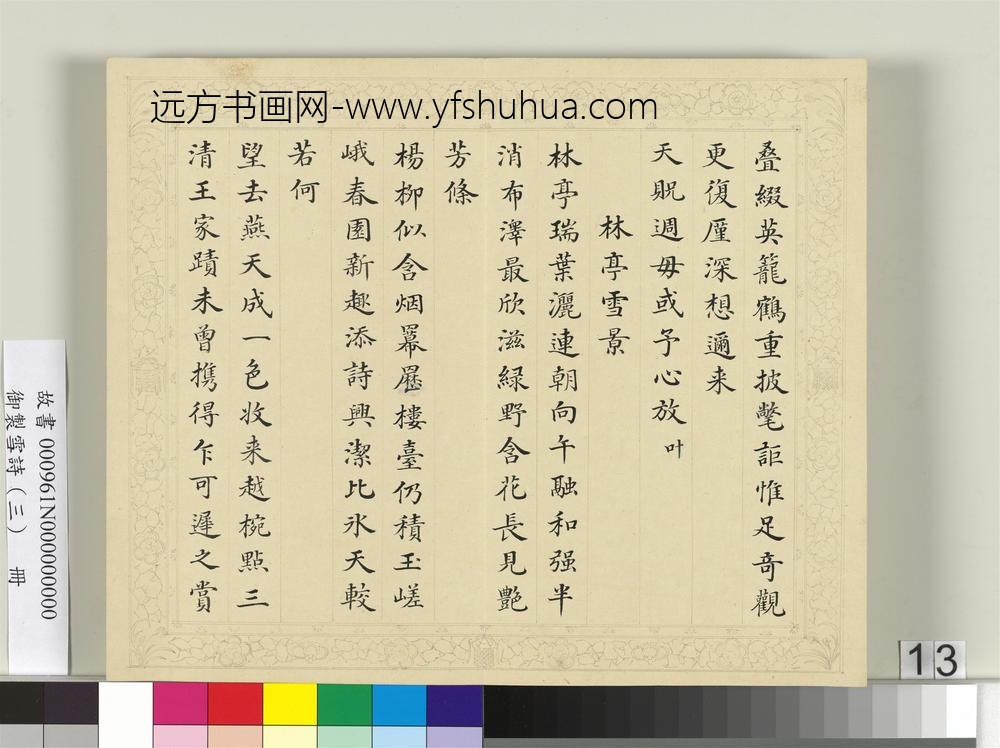 远方书画网-www.yfshuhua.com
叠綴英籠鶴重披氅詎惟足奇觀
更復厪深想邇来
天貺週毋或予心放叶
林亭雪景
林亭瑞葉灑連朝向午融和强半
消布澤最欣滋緑野含花長見艷
芳條
楊柳似含烟羃㞕樓臺仍積玉嵯
峨春園新趣添詩興潔比氷天較
若何
望去燕天成一色收来越椀點三
清王家蹟未曾携得乍可遲之賞
故書 000961N000000000
御製雪詩（三） 冊
13